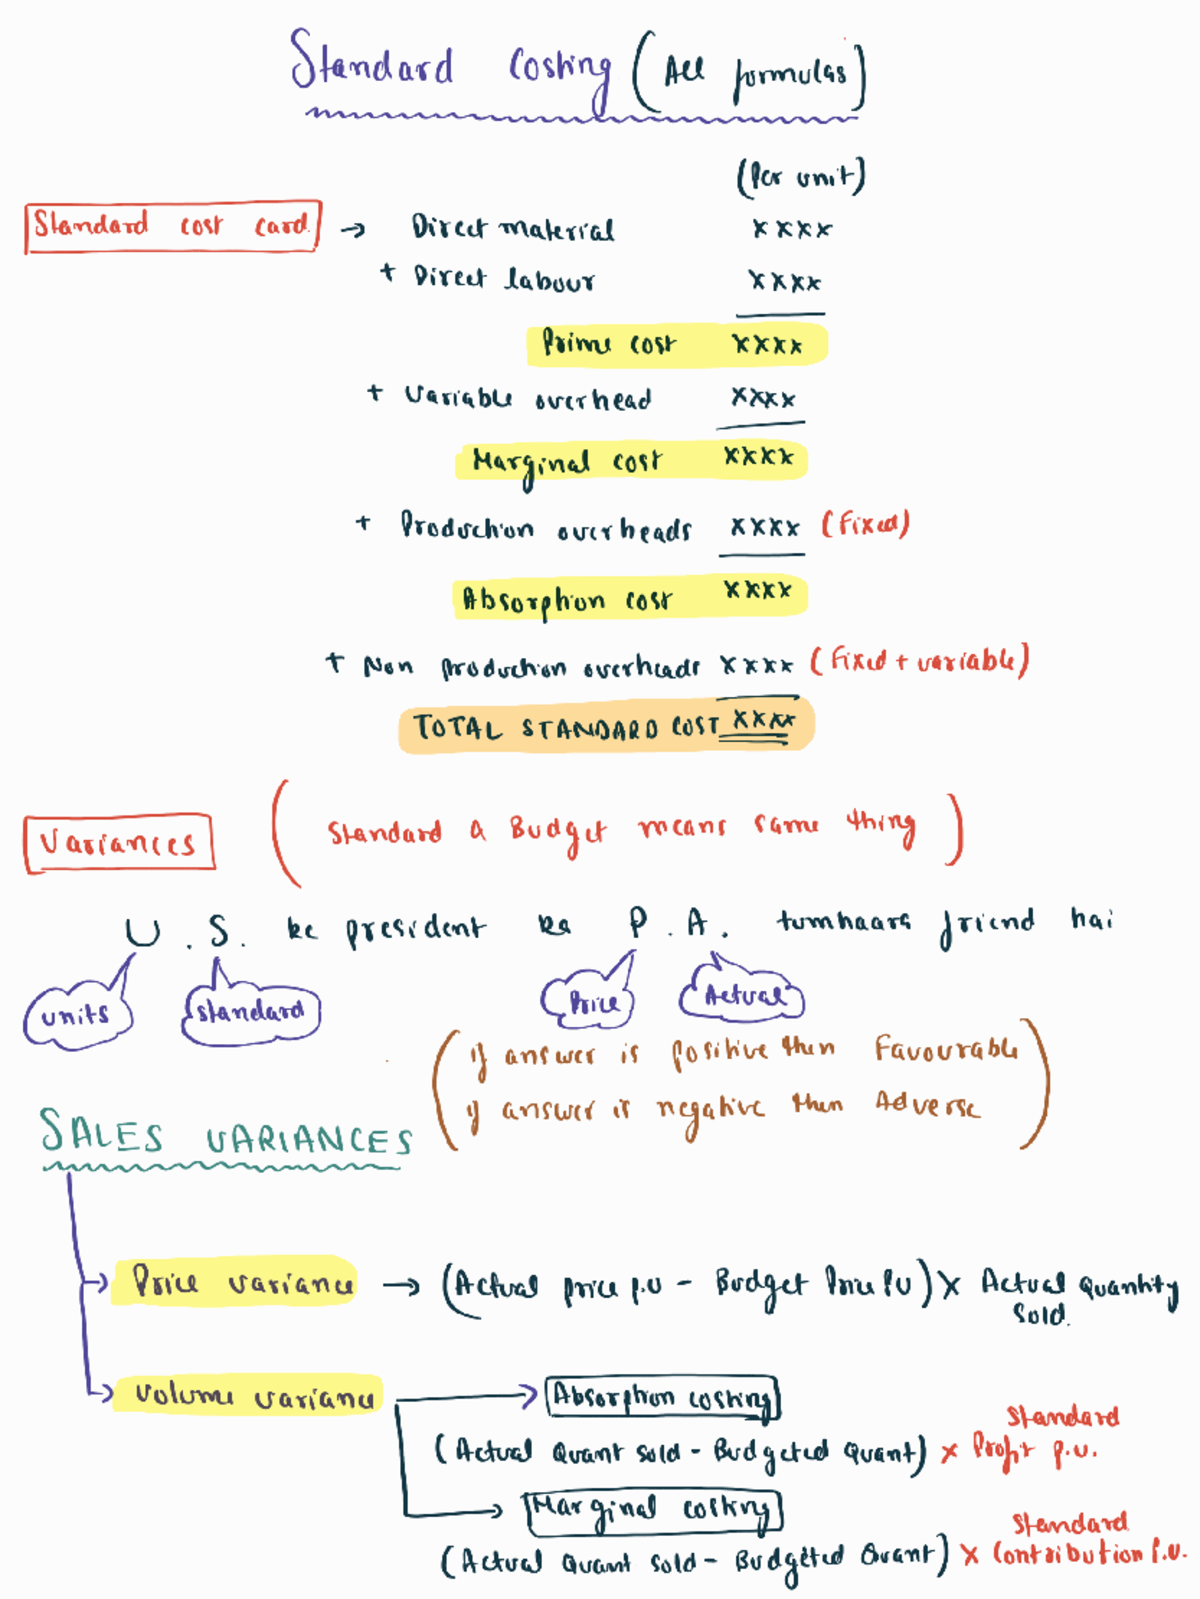 Standard Costing (All formulas)
(Per unit)
Standard cost card → Direct material xxxx
+ Direct labour xxxx
Prime cost xxxx
+ Variable overhead xxxx
Marginal cost xxxx
+ Production overheads xxxx (Fixed)
Absorption cost xxxx
+ Non production overheads xxxx (Fixed + variable)
TOTAL STANDARD COST xxxx
Variances (Standard & Budget means same thing)
U.S. ke president ka P.A. tumhaara friend hai
units standard Price Actual
(if answer is positive then Favourable
if answer is negative then Adverse)
SALES VARIANCES
Price variance → (Actual price p.u - Budget Price PU) x Actual Quantity
Sold.
Volume variance → Absorption costing
(Actual Quant sold - Budgeted Quant) x Standard Profit p.u.
→ Marginal costing
(Actual Quant sold - Budgeted Quant) x Standard Contribution P.U.